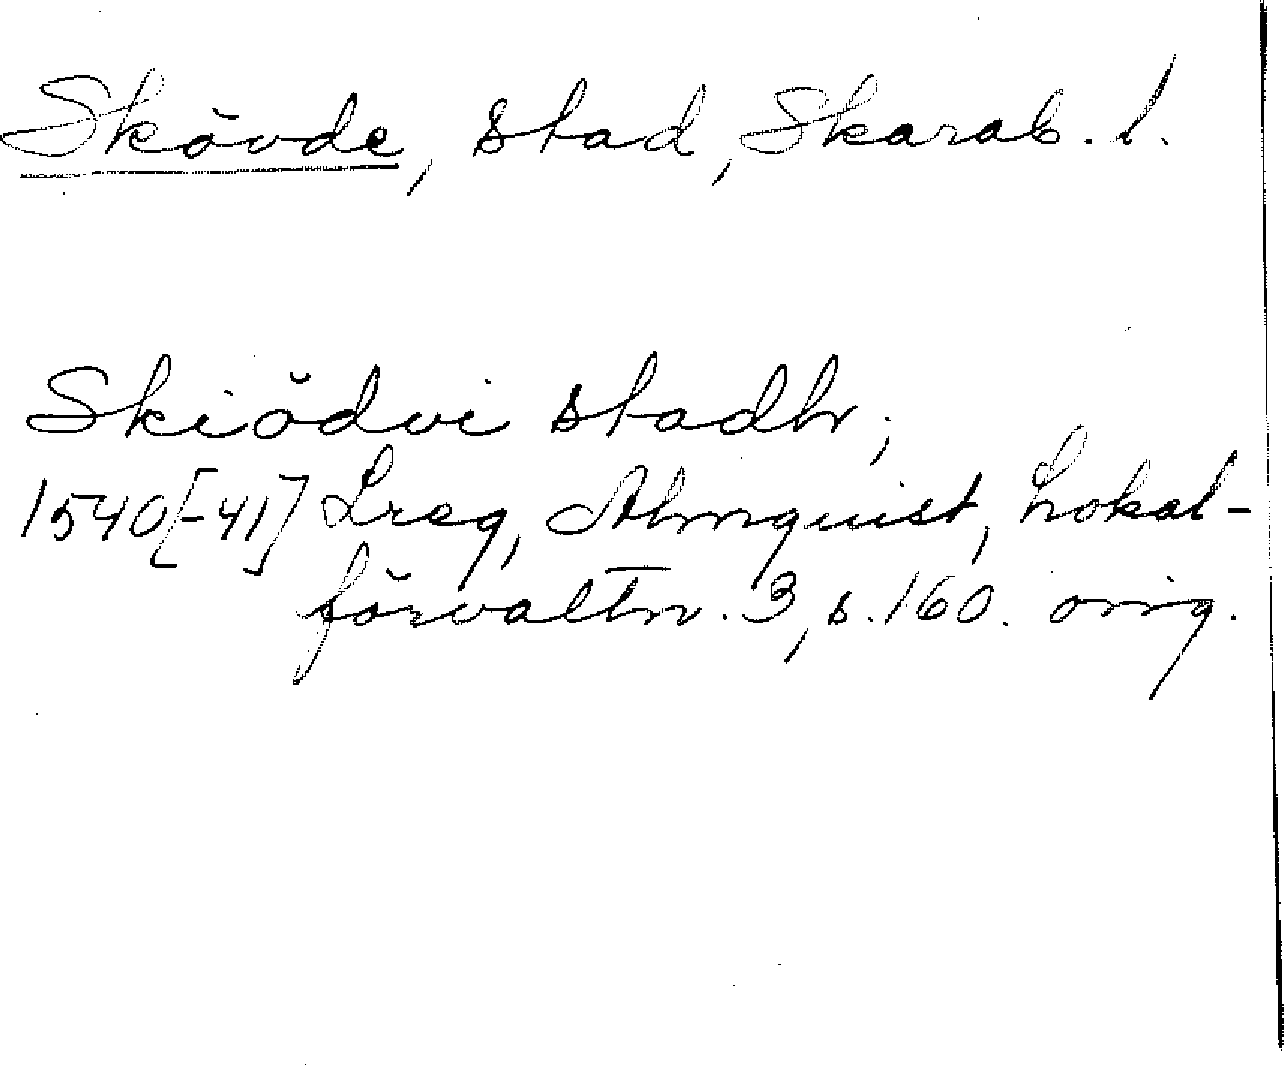 Skövde, stad, Skarab. l.
Skiödvi stadh;
1540[-41] Lreg, Almquist, Lokal-
förvaltn. 3, s. 160. orig.